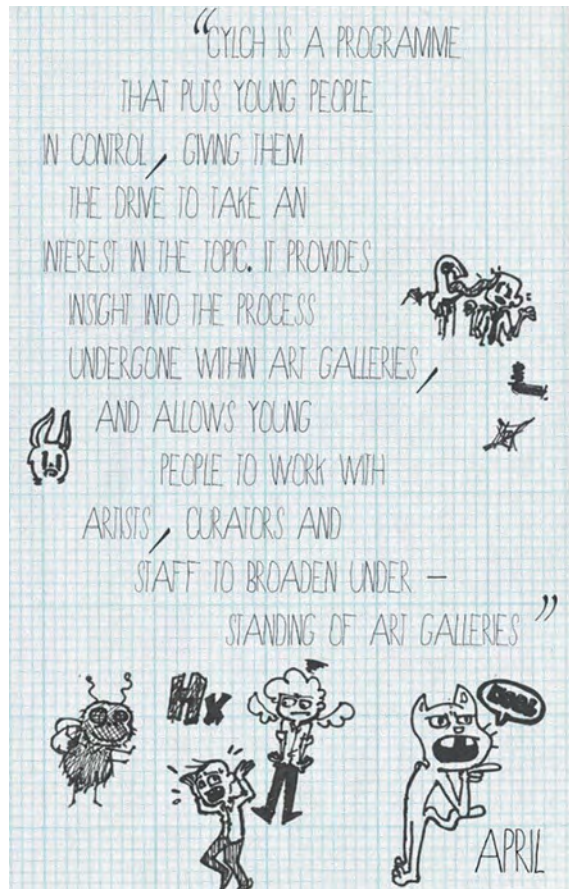 “CYLCH IS A PROGRAMME
THAT PUTS YOUNG PEOPLE
IN CONTROL, GIVING THEM
THE DRIVE TO TAKE AN
INTEREST IN THE TOPIC. IT PROVIDES
INSIGHT INTO THE PROCESS
UNDERGONE WITHIN ART GALLERIES,
AND ALLOWS YOUNG
PEOPLE TO WORK WITH
ARTISTS, CURATORS AND
STAFF TO BROADEN UNDER –
STANDING OF ART GALLERIES”
Hx
APRIL